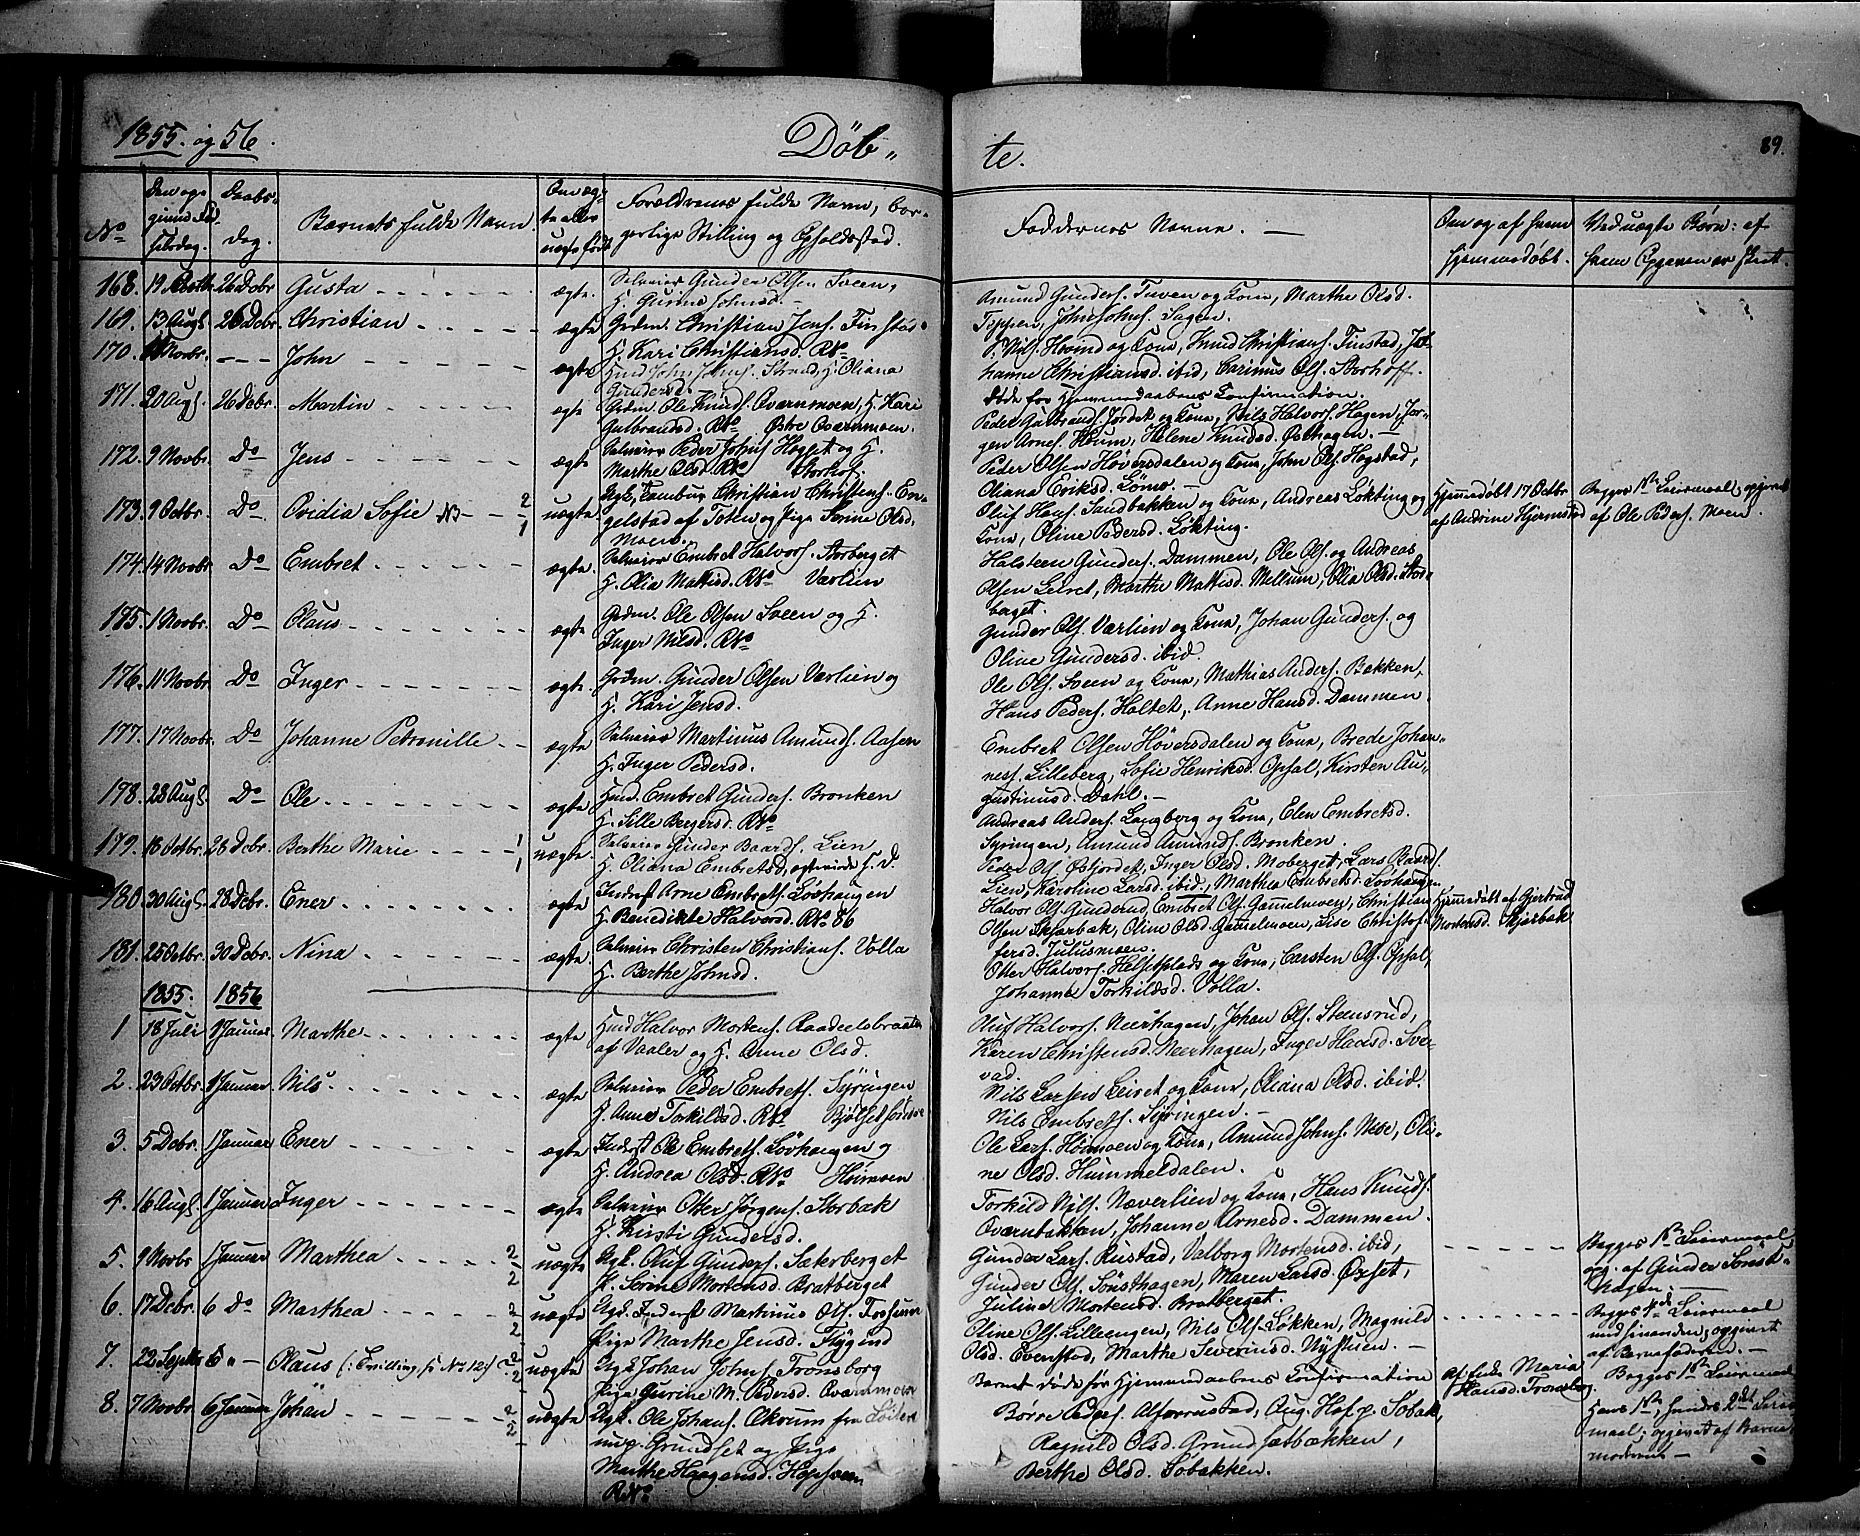 1855. og 56.
Döb„
te.
89.
No
Den op-
givne Fød-
selsdag.
Daabs-
dag.
Barnets fulde Navn
Om æg-
te eller
uægte født
Forældrenes fulde Navn, bor-
gerlige Stilling og Opholdssted.
Faddernes Navne. —
Om og af hvem
hjemmedøbt.
Ved uægte Børn: af
hvem Opgaven er skeet.
168. 26 Dcbr Gusta ægte. Selveier Gunder Olsen Sveen,
H. Gurine Johnsd. —
Amund Gunders. Tuven og Kone, Marthe Olsd.
Teppen, John Johns. Sagen.
169. 13 Augs. 26 Dcbr. Christian ægte Grdm. Christian Jens. Finstad
H. Kari Christiansd. RNo
P. Nils. Hovind og Kone, Knud Christians. Finstad, Jo-
hanne Christiansd. ibid, Carinus Ols. Storhoff.
170. Novbr. - - - John ægte Hmd John Johns. Strand, H. Oliana
Gundersd.
døde før Hjemmedaabens Confirmation.
171. 20 Augs. 26 Dcbr. Martin ægte Grdm. Ole Knuds. Qværnmoen, H. Kari
Gulbrandsd. RNo Østre Qværnmoen.
Peder Gulbrands. Jordet og Kone, Nils Halvors. Hagen, Jør-
gen Arnes. Houm, Helene Knudsd. Østhagen. —
172. 9 Novbr. Do Jens ægte Selveier Peder Johns. Hogset og H.
Marthe Olsd. RNo Storhof.
Peder Olsen Høversdalen og Kone, John Ols. Hogstad,
Oliana Eriksd. Lømo. —
173. 9 Octbr. Do Ovidia Sofie NB 2/1 uægte Ugk. Tambur Christian Christians. En-
gelstad af Toten og Pige Serine Olsd.
Moen.
Oluf Hans. Sandbakken og Kone, Andreas Løkting og
Kone, Oline Pedersd. Løkting.
Hjemmedøbt 17 Octbr
af Andrine Hjermstad
Begges 1ste Leiermaal, opgivet
af Ole Peders. Moen.
174. 14 Novbr Do Embret ægte. Selveier Embret Halvors. Storberget
H. Olia Mathisd. RNo Værlien
Halsteen Gunders. Dammen, Ole Ols. og Andreas
Olsen Leiret, Marthe Mathisd. Mellum, Olia Olsd. Stor-
berget.
175. 1 Novbr. Do Olaus ægte Grdm. Ole Olsen Sveen og H.
Inger Nilsd. RNo
Gunder Ols. Værlien og Kone, Johan Gunders. og
Oline Gundersd. ibid.
176. 11 Novbr Do Inger ægte. Grdm. Gunder Olsen Værlien og
H. Kari Jensd.
Ole Ols. Sveen og Kone, Mathias Anders. Bakken,
Hans Peders. Holtet, Anne Hansd. Dammen.
177. 17 Novbr. Do Johanne Petronille ægte Selveier Martinus Amunds. Aasen
H. Inger Pedersd.
Embret Olsen Høversdalen og Kone, Brede Johan-
nes. Lilleberg, Sofie Henriksd. Opsal, Kirsten Au-
gustinusd. Dahl. —
178. 28 Augs. Do Ole ægte Hmd. Embret Gunders. Bronken
H. Sille Bergersd. RNo
Andreas Anders. Langberg og Kone, Elen Embretsd.
Syringen, Amund Amunds. Bronken.
179. 18 Octbr. 28 Dcbr. Berthe Marie 1/1 uægte. Selveier Gunder Baards. Lien
H. Oliana Embretsd,
Peder Ols. Østjordet, Inger Olsd. Moberget, Lars Baards.
Lien, Karoline Larsd. ibid., Marthea Embretsd. Løvhaugen
180. 30 Augs. 28 Dcbr. Ener ægte Inderst Arne Embrets. Løvhaugen
H. Benedikte Halvorsd. RNo 86
Halvor Ols. Gunderud, Embret Ols. Gammelmoen, Christian
Olsen Skjærbak, Oline Olsd. Gamelmoen, Lise Christof-
fersd. Julusmoen.
Hjemmedøbt af Gjertrud
Mortensd. Skjærbak
181. 25 Octbr. 30 Dcbr. Nina ægte. Selveier Christen Christians. Volla
H. Berthe Johnsd.
Otter Halvors. Helsetplads og Kone, Carsten Ols. Opsal,
Johanne Torkildsd. Volla.
1855. 1856
1 18 Juli 1 Januar Marthe ægte Hmd Halvor Mortens. Raadeelsbraaten
af Vaaler og H. Anne Olsd.
Oluf Halvors. Neerhagen, Johan Ols. Steensrud,
Karen Christensd. Neerhagen, Inger Hansd. Sve-
vad.
2. 23 Octbr. 1 Januar Nils ægte Selveier Peder Embrets. Syringen
H. Anne Torkildsd. RNo
Nils Larsen Leiret og Kone, Oliana Olsd. ibid.
Nils Embrets. Syringen. —
3. 5 Dcbr. 1 Januar Ener ægte Inderst Ole Embrets. Løvhaugen og
H. Andrea Olsd. RNo Høimoen
Ole Lars. Høimoen og Kone, Amund Johns. Næbe, Oli-
ne Olsd. Hummeldalen.
4. 16 Augs. 1 Januar Inger ægte Selveier Otter Jørgens. Storbak
H. Kirsti Gundersd.
Torkild Nils. Næverlien og Kone, Hans Knuds.
Qværnbakken, Johanne Arnesd. Dammen.
5. 9 Novbr 1 Januar Marthea 2/2 uægte Ugk. Oluf Gunders. Sæterberget
P. Serine Mortensd. Bratberget
Gunder Lars. Rustad, Valborg Mortensd. ibid,
Gunder Ols. Sønsthagen, Maren Larsd. Oxset,
Juline Mortensd. Bratberget.
Begges 1ste Leiermaal
opg. af Gunder Sønst-
hagen. —
6. 17 Dcbr. 6 Do Marthea 2/2 uægte Ugk. Inderst Martinus Ols. Tosgeren
Pige Marthe Jensd. Flygind
Oline Ols. Lilleengen, Nils Ols. Løkken, Magnild
Olsd. Evenstad, Marthe Severinsd. Nystuen. —
Begges Leiermaal
med hinanden; opgivet
af Barnefaderen. —
7. 22 Septbr 6 „ — Olaus (: Tvilling, s. No 12:) 2/2 uægte Ugk Johan Johns. Tronsborg
Pige Gurine M. Pedersd. Qvænmoen
Barnet døde før Hjemmedaabens Confirmation
Af Enke Maria
Hansd. Tronsborg.
Begges 1ste Leiermaal
8. 7 Novbr 6 Januar Johan 2/2 uægte Ugk. Ole Johans. Økrum fra Løiten
nu p. Grundset og Pige
Marthe Haagensd. Hopsveen
RNo
Børre Peders. Alfarrustad, Aug. Hof p. Sobak,
Ragnild Olsd. Grundsætbækken,
Berthe Olsd. Sobakken.
Hans 1ste, hendes 2det Leier-
maal; opgivet af Barne-
moderen —